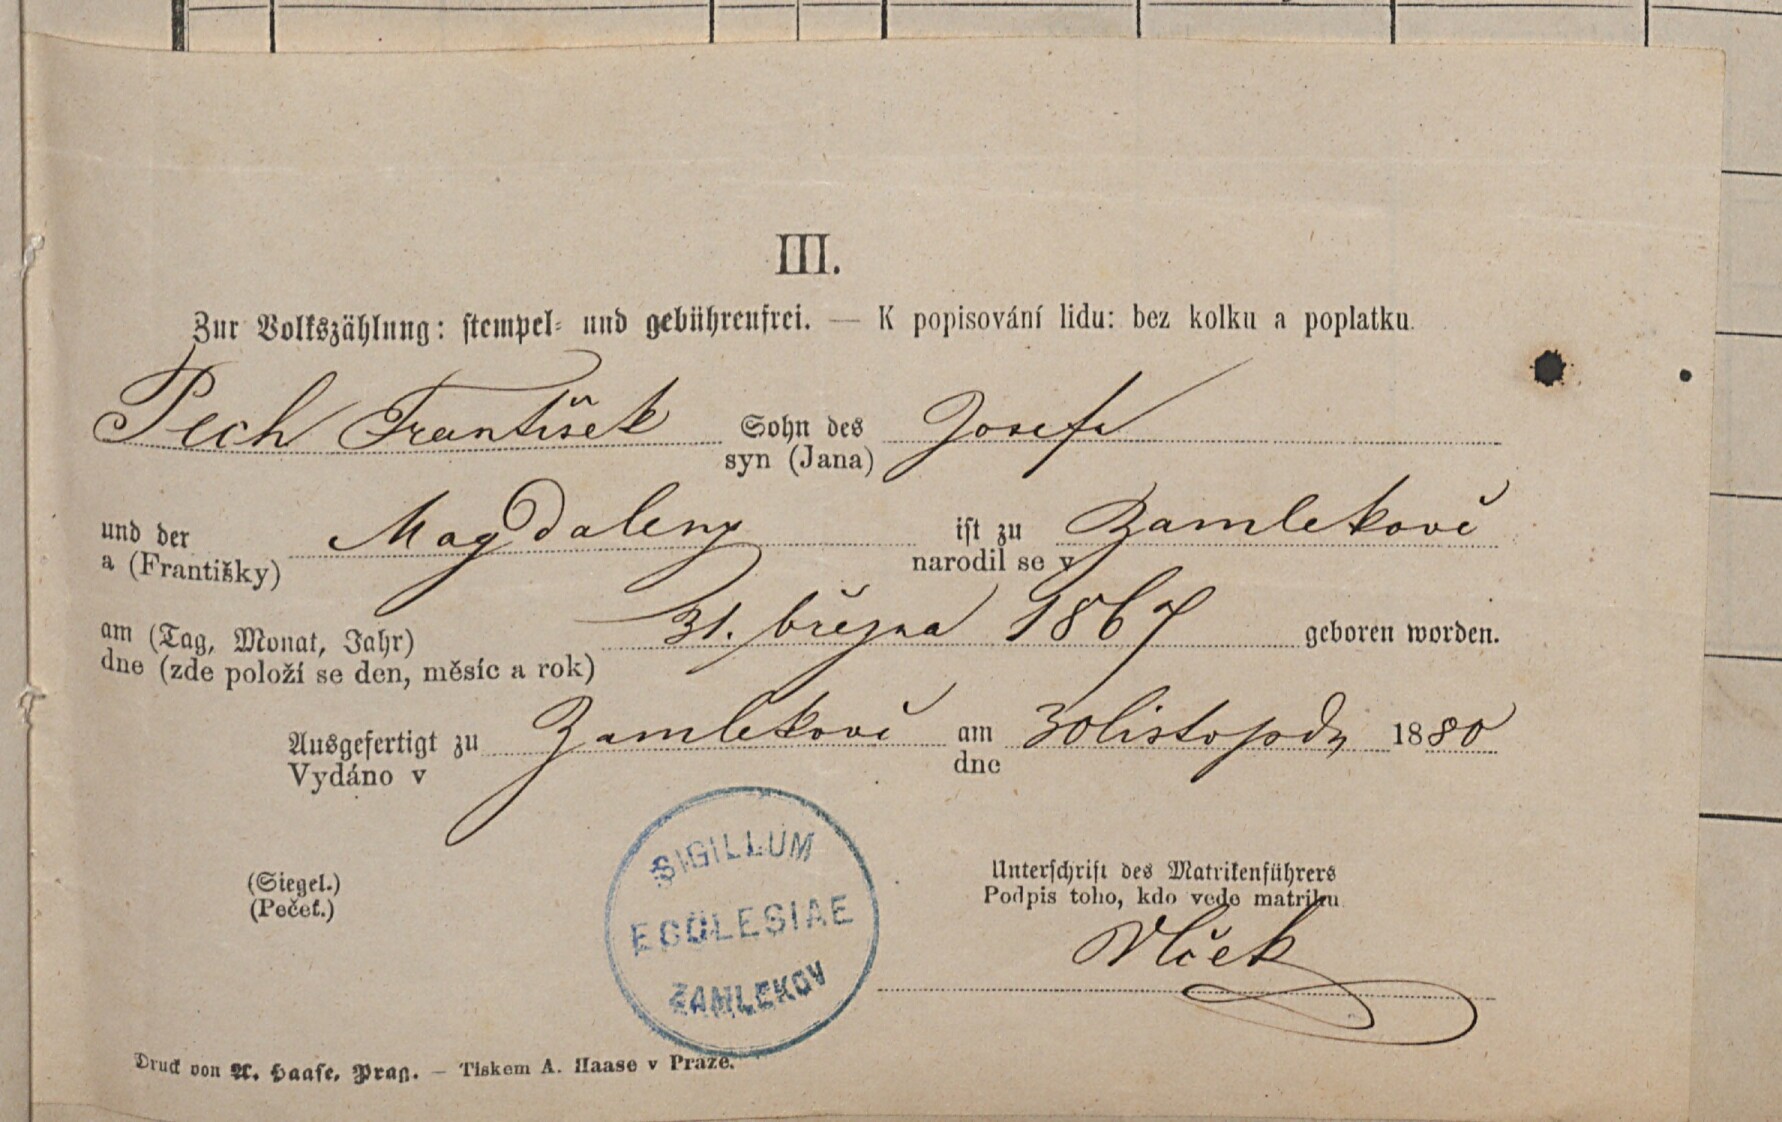 III.
Zur Volkszählung: stempel- und gebührenfrei. — K popisování lidu: bez kolku a poplatku.
Pech František Sohn des Josefa
syn (Jana)
und der Magdaleny ist zu Žamlekově
a (Františky) narodil se v
am (Tag, Monat, Jahr) 31. března 1867 geboren worden.
dne (zde položí se den, měsíc a rok)
Ausgefertigt zu Žamlekově am 30 listopdu 1880
Vydáno v dne
SIGILLUM
ECCLESIAE
ŽAMLEKOV
(Siegel.)
(Pečeť.)
Unterschrift des Matrikenführers
Podpis toho, kdo vede matriku
Vlček
Druck von A. Haase, Prag. — Tiskem A. Haase v Praze.